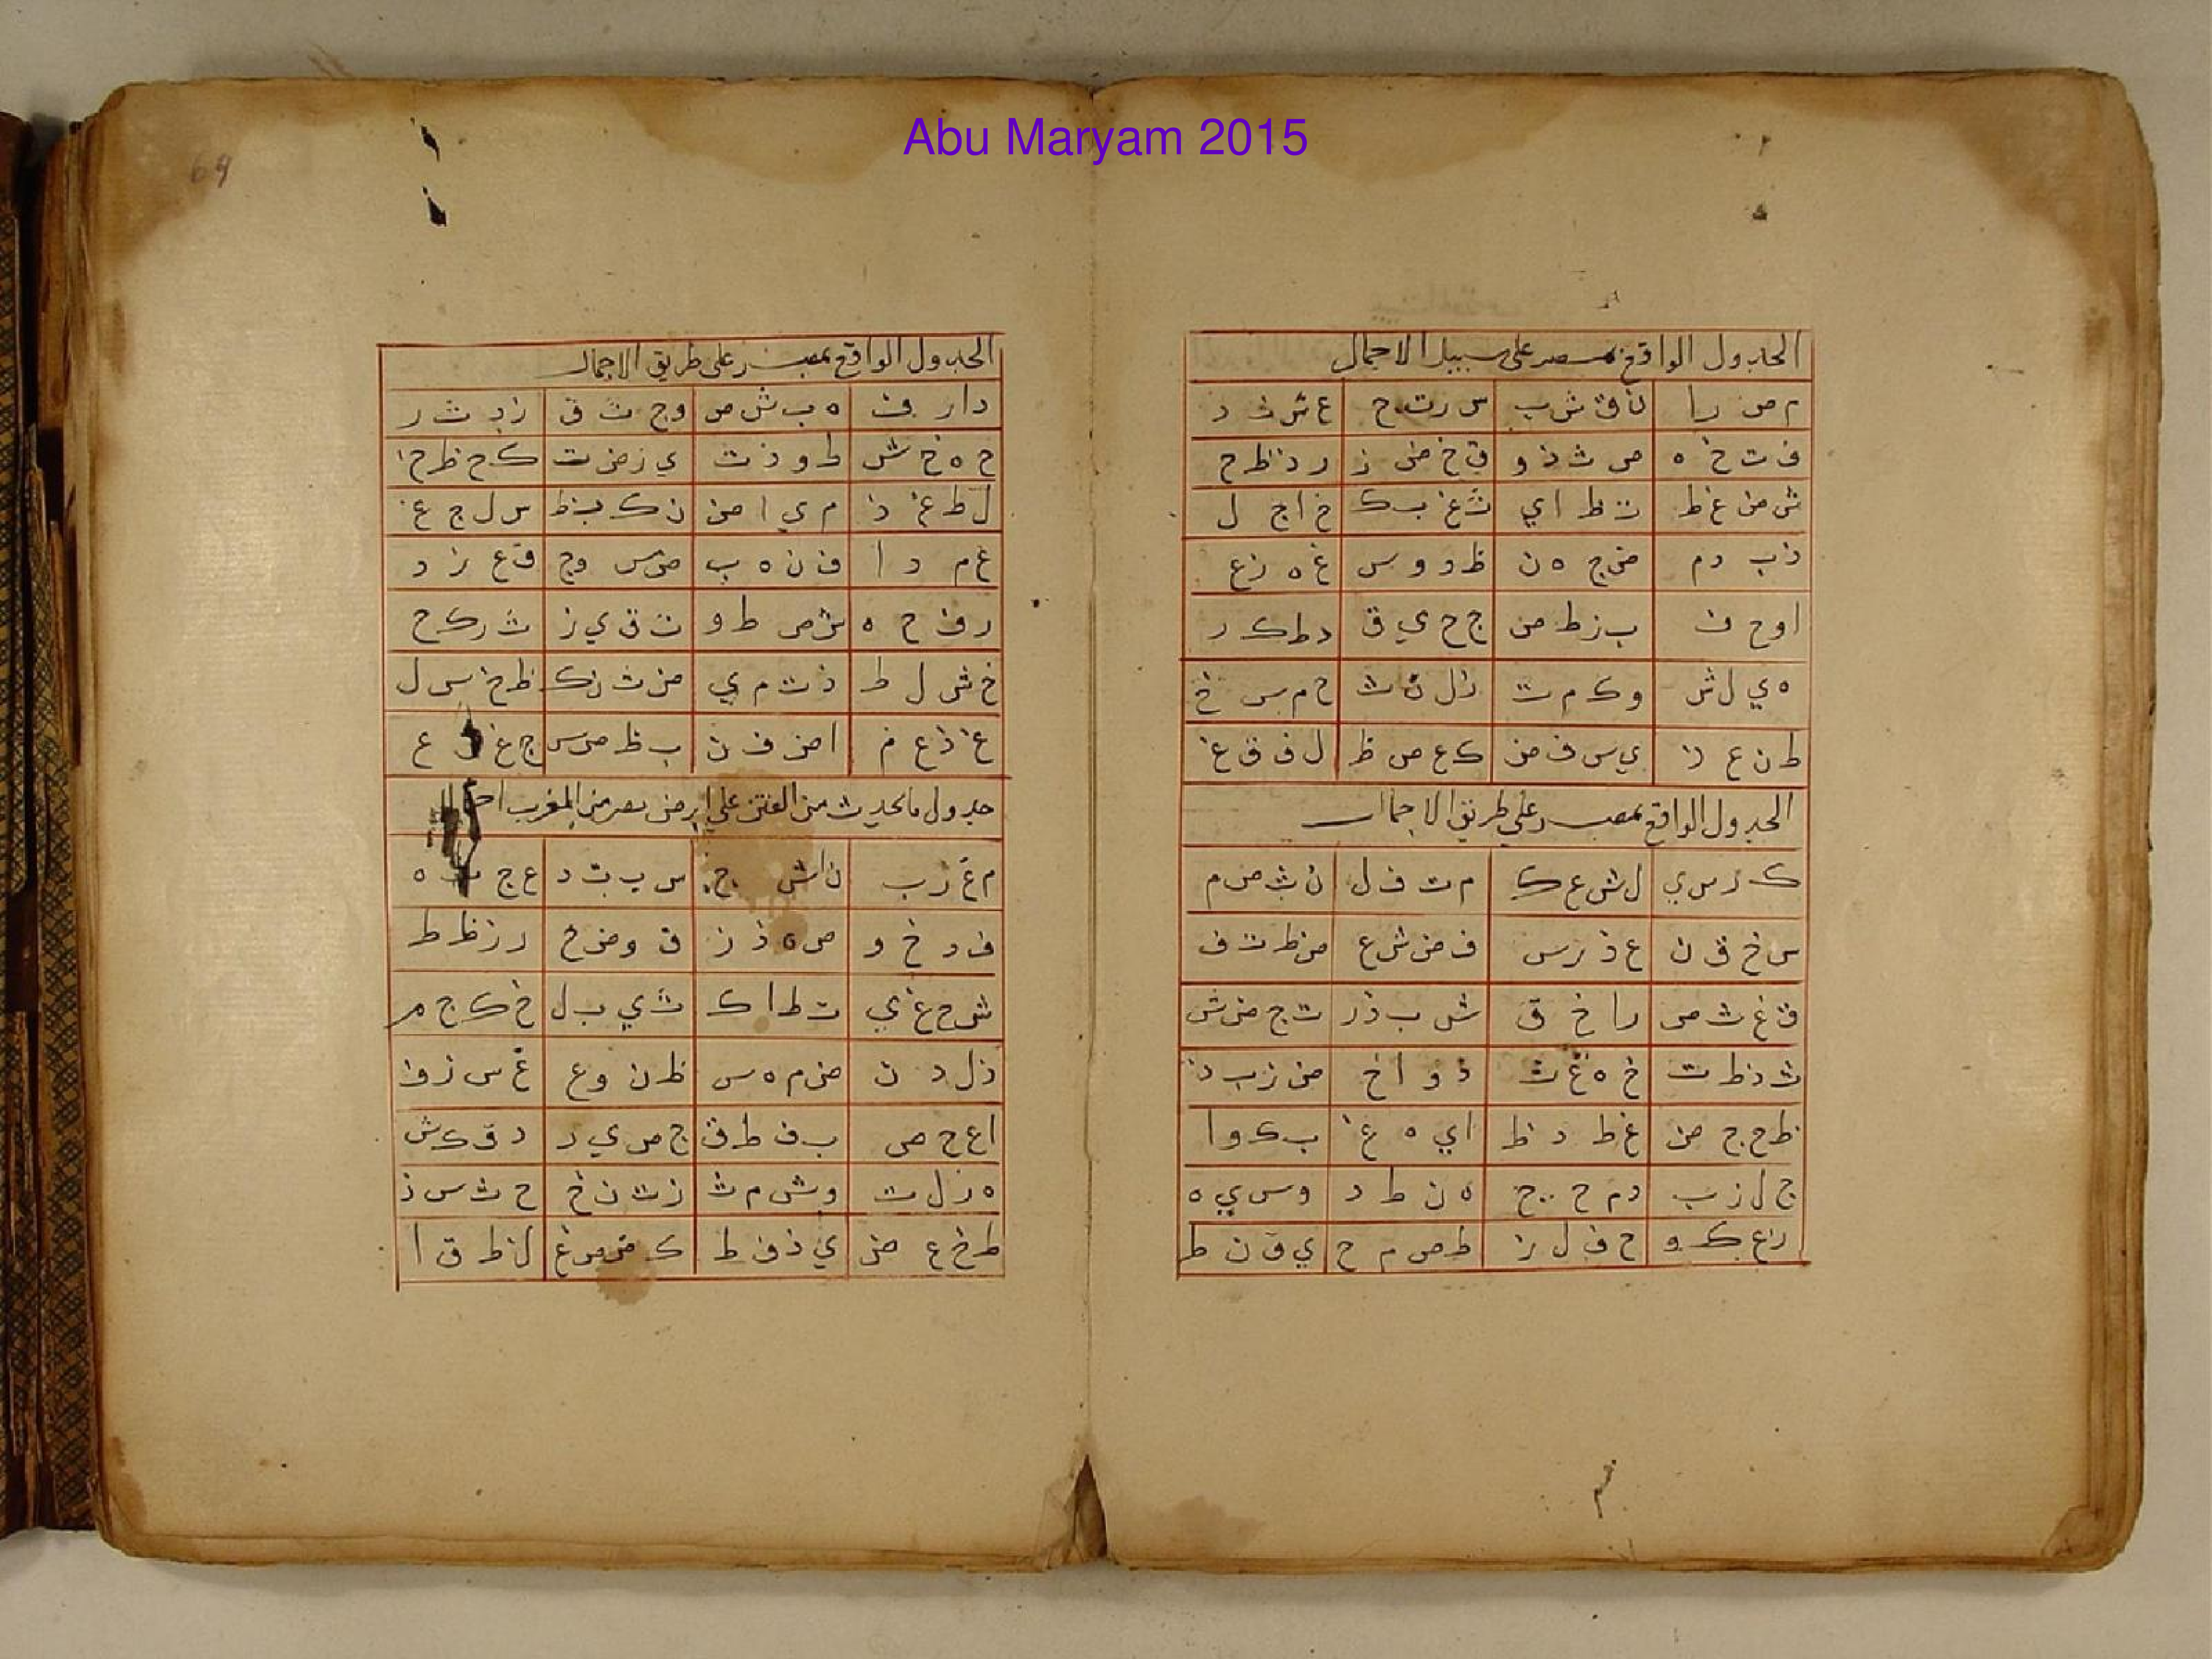 Abu Maryam 2015
69
الجدول الواقع بمصر على سبيل الاجمال
م ص ر ا ن ق ش ب س ر ت ج ع ش ث د
ف ت خ ه ص ث ذ و ق خ ض ز ر ذ ظ ح
ش ض غ ط ت ظ ا ي ث غ ب ك خ ا ج ل
ذ ب د م ض ج ه ن ظ د و س غ ه ز ع
ا و ح ف ب ز ط ص ج ح ي ق د ط ك ر
ه ي ل ش و ك م ت ز ل ن ث ح م س خ
ط ن ع ذ ي س ف ض ك ع ص ظ ل ف ق غ
الجدول الواقع بمصر على طريق الاجمال
ك ر س ي ل ش ع ك م ت ف ل ن ث ص م
س خ ق ن ع ذ ر س ف ض ش ع ص ظ ت ف
ق غ ث ص ر ا خ ق ش ب ذ ر ت ج ض ش
ث د ظ ت خ ه غ ث ذ و ا خ ض ز ب ذ
ظ ح ج ض غ ط د ظ ا ي ه غ ب ك و ا
ج ل ز ب د م ح ج ه ن ط د و س ي ه
ز ع ك و ح ف ل ز ط ص م ح ي ق ن ط
الجدول الواقع بمصر على طريق الاجمال
د ا ر ف ه ب ش ص و ج ت ق ز د ث ر
ح ه خ ش ط و ذ ت ي ز ض ث ك ح ظ خ
ل ط غ ذ م ي ا ض ن ك ب ظ س ل ج غ
ع م د ا ف ن ه ب ص س و ج ق ع ز د
ر ف ح ه ش ص ط و ت ق ي ز ث ر ك ح
خ ش ل ط ذ ت م ي ض ث ن ك ظ خ س ل
غ ذ ع م ا ض ف ن ب ظ ص س ج غ ع
جدول ما يحدث من الفتن على ارض مصر من المغرب
م غ ر ب ن ا ش ج س ب ت د ع ج ث ه
ف د خ و ص ه ذ ز ق و ض ح ر ز ظ ط
ش ح غ ي ت ط ا ك ث ي ب ل خ ك ج م
ذ ل د ن ض م ه س ظ ن و ع غ س ز ف
ا ع ح ص ب ف ط ق ج ص ي ر د ق ك ش
ه ر ل ت و ش م ث ز ت ن خ ح ث س ذ
ط خ ع ض ي ذ ف ظ ك ض ص غ ل ظ ق ا